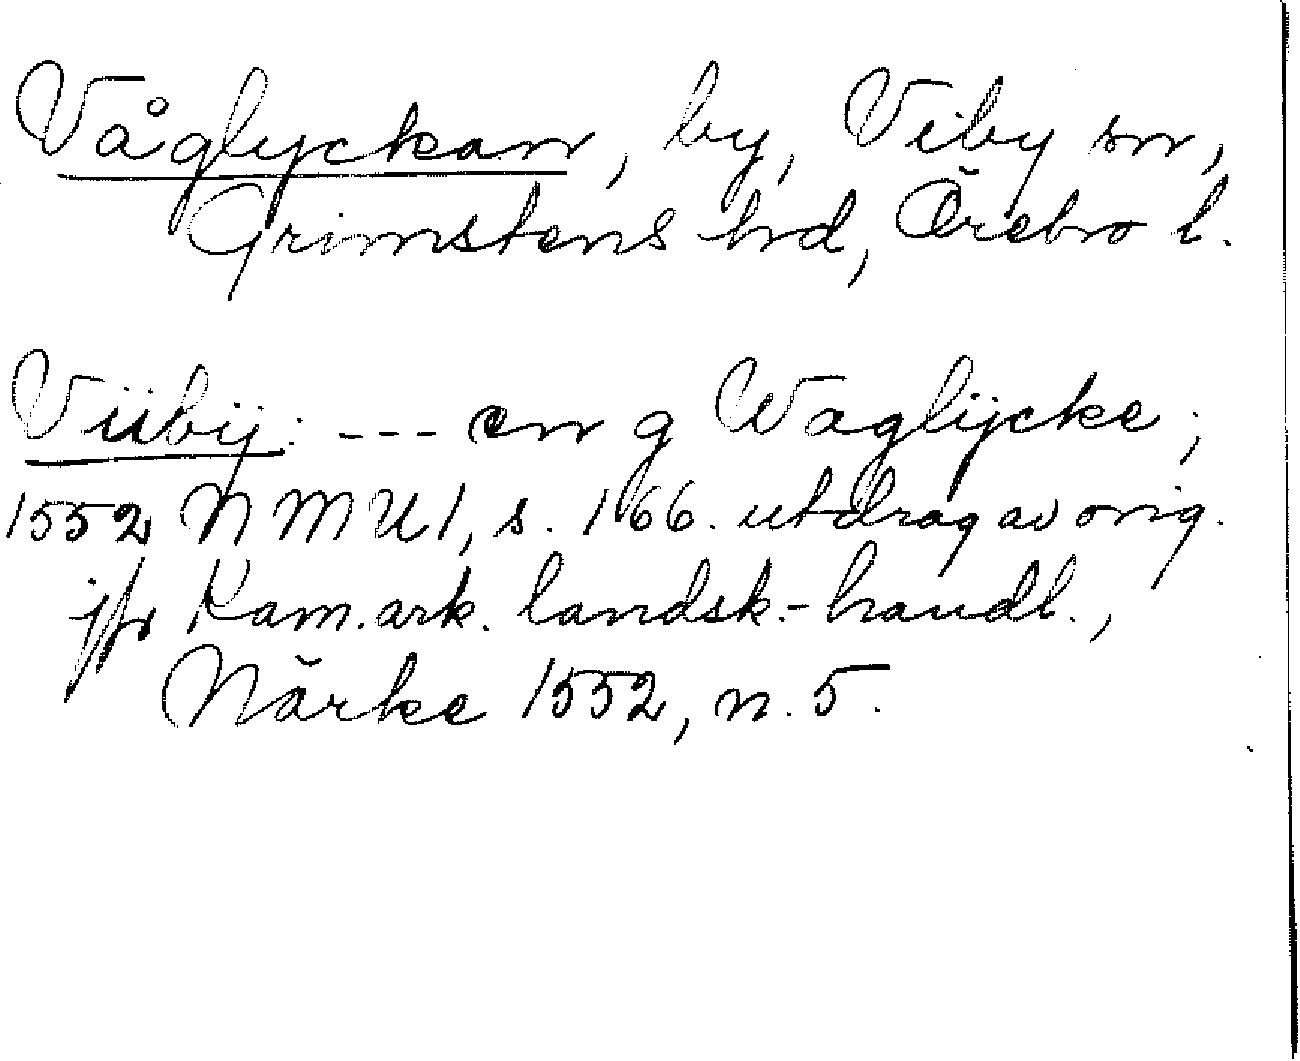 Våglyckan, by, Viby sn,
Grimstens hrd, Örebro l.
Viibij: --- en g Waglijcke;
1552 NMU1, s. 166. utdrag av orig.
jfr Kam.ark. landsk.-handl.,
Närke 1552, n. 5.